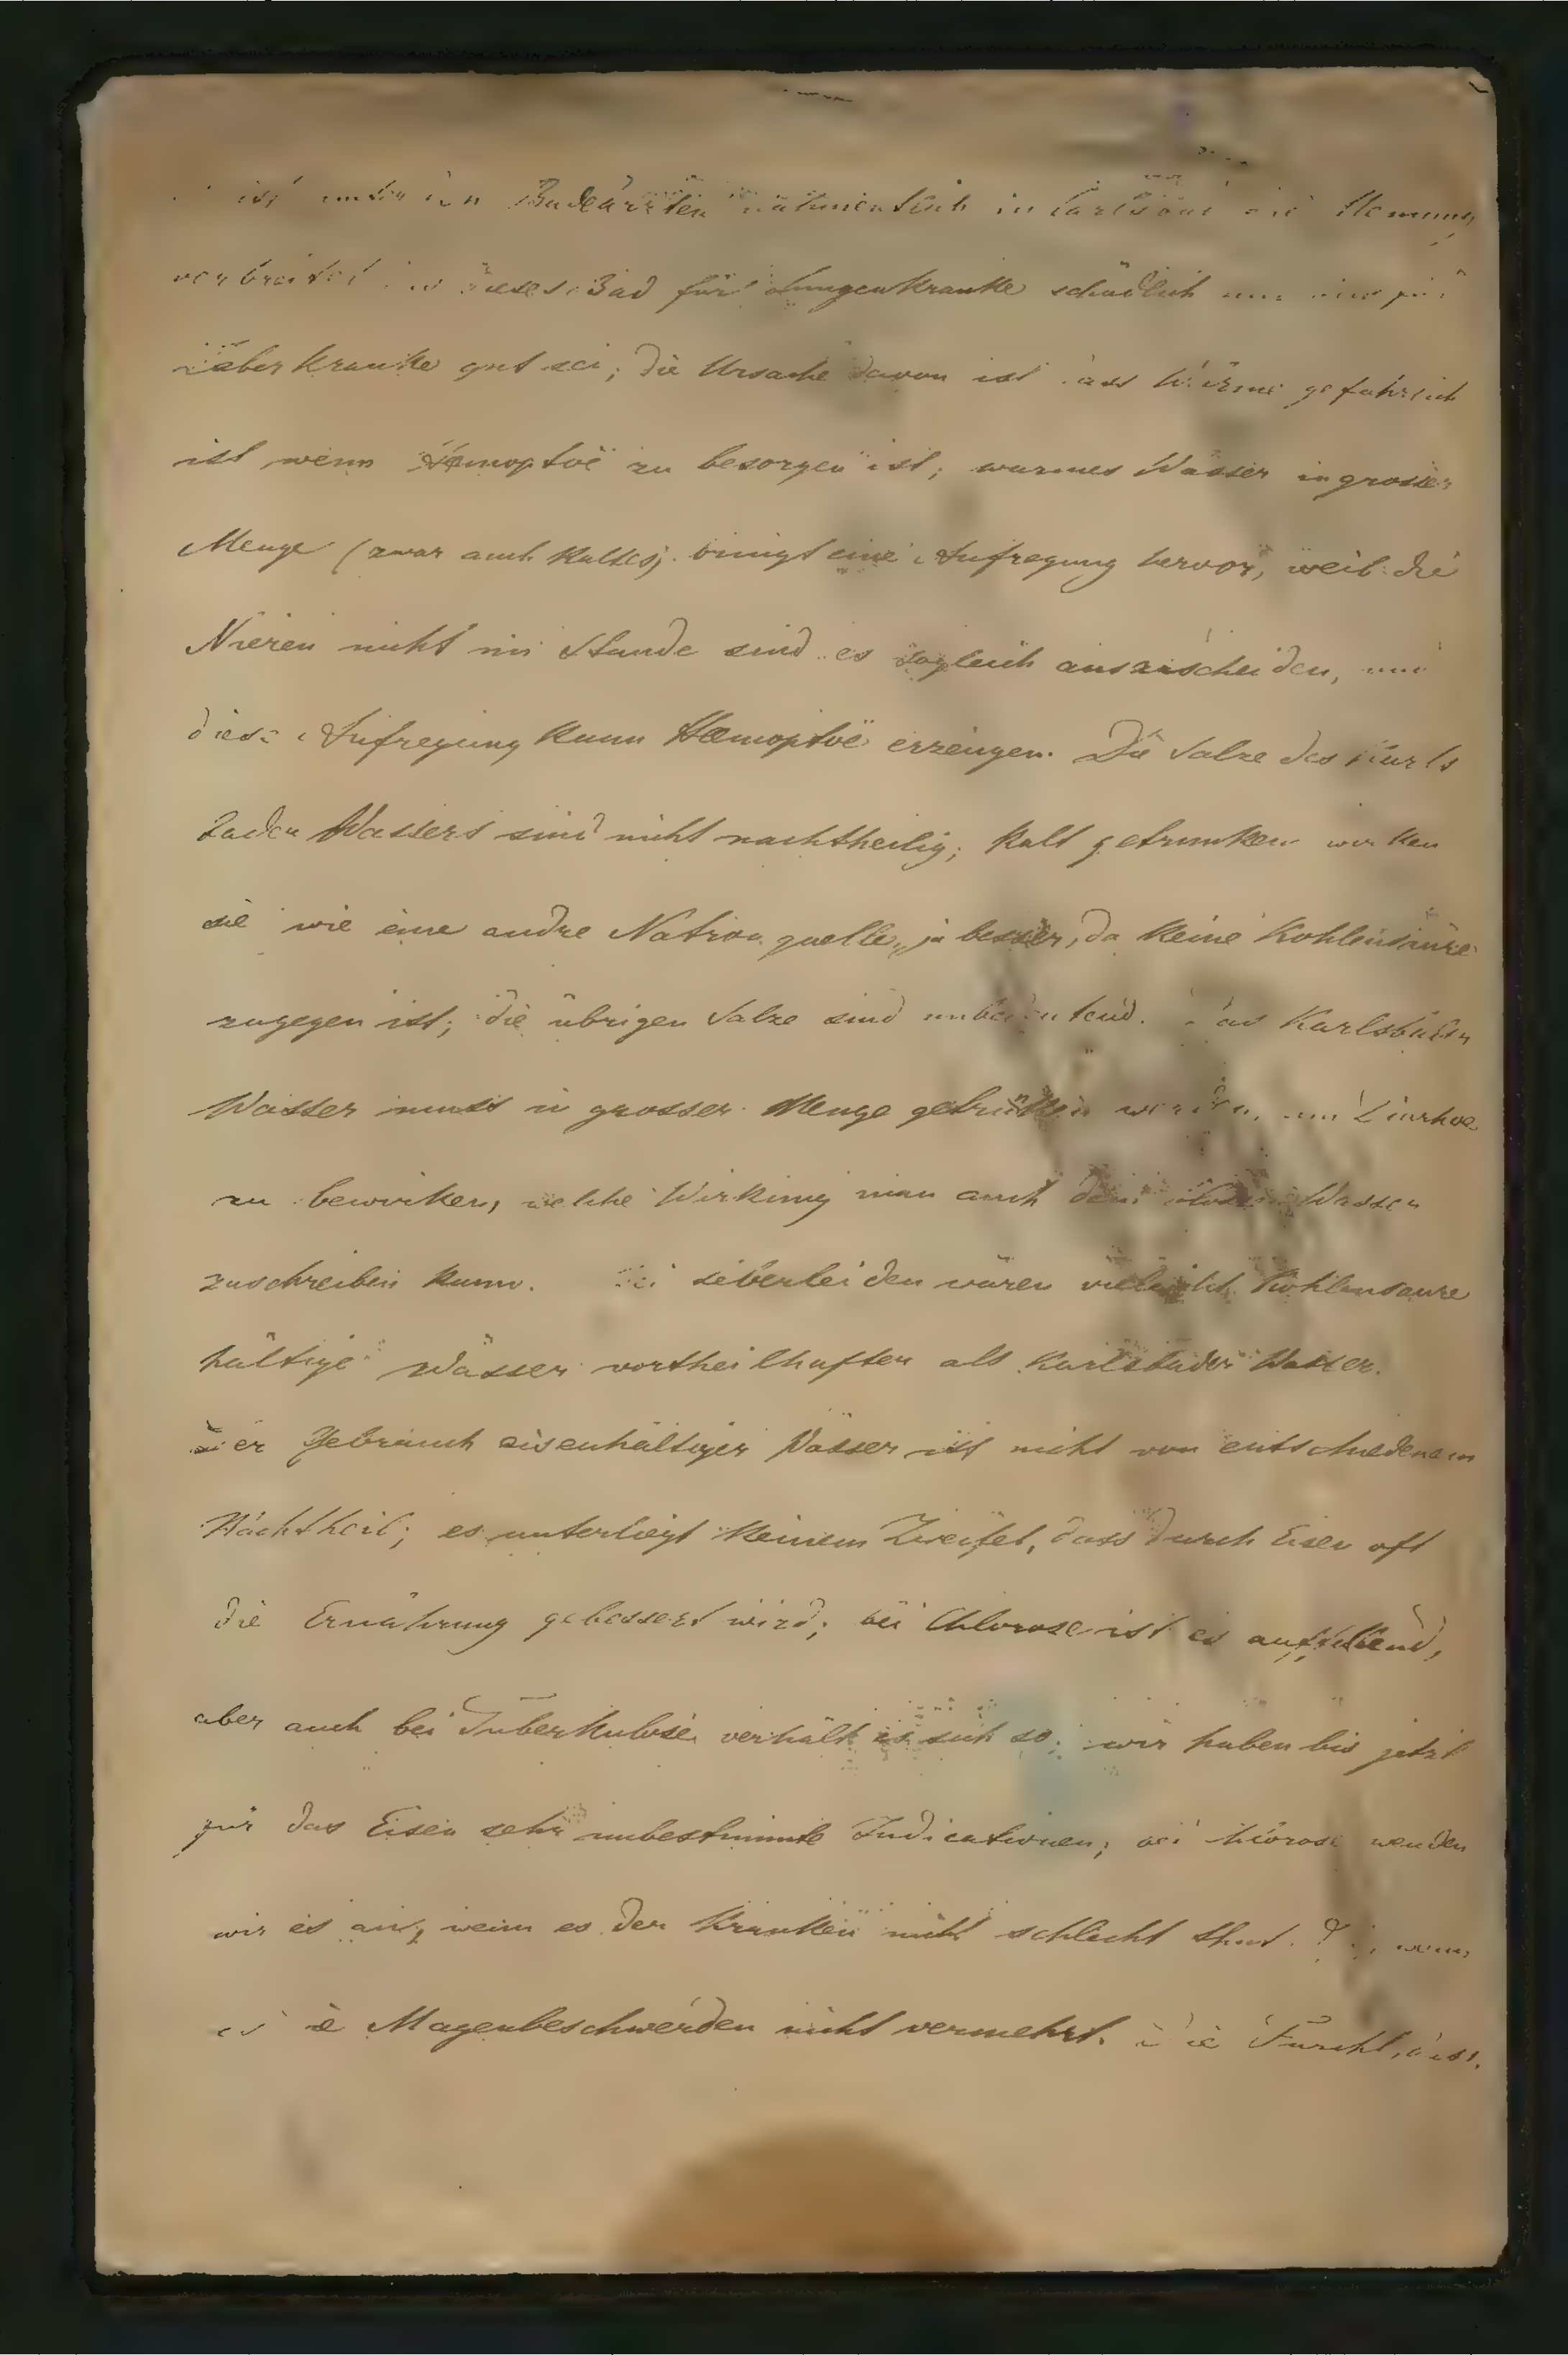 ist unter den Badeärzten nahmentlich in Carlsbad die Meinung
verbreitet dieses Bad für Lungenkranke schädlich und nur für
Leberkranke gut sei; die Ursache davon ist dass Wärme gefährlich
ist wenn Hæmoptoë zu besorgen ist; warmes Wasser in grosser
Menge (zwar auch kaltes) bringt eine Aufregung hervor, weil die
Nieren nicht im Stande sind es sogleich auszuscheiden, und
diese Aufregung kann Hæmoptoë erzeugen. Die Salze des Karls
bader Wassers sind nicht nachtheilig; kalt getrunken wirken
sie wie eine andre Natronquelle, ja besser, da keine Kohlensäure
zugegen ist; die übrigen Salze sind unbedeutend. Das Karlsbader
Wasser muss in grosser Menge getrunken werden, um Diarhoe
zu bewirken, welche Wirkung man auch dem Wasser
zuschreiben kann. Bei Leberleiden wären vielleicht Kohlensäure
hältige Wässer vortheilhafter als Karlsbader Wasser.
Der Gebrauch eisenhältiger Wässer ist nicht von entschiedenem
Nachtheil; es unterliegt keinem Zweifel, dass durch Eisen oft
die Ernährung gebessert wird; bei Chlorose ist es auffallend,
aber auch bei Tuberkulose verhält es sich so; wir haben bis jetzt
für das Eisen sehr unbestimmte Indicationen; bei Chlorose wenden
wir es an, wenn es der Kranken nicht schlecht thut. wenn
es die Magenbeschwerden nicht vermehrt. Die Furcht, dass